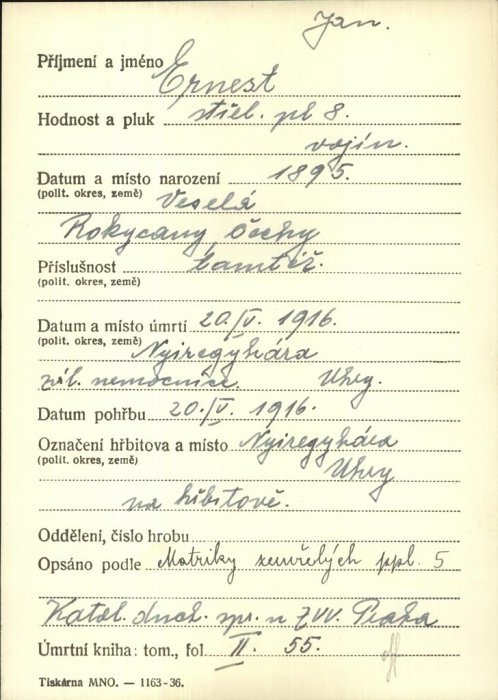 Jan.
Příjmení a jméno Ernest
Hodnost a pluk střel. pl 8.
vojín.
Datum a místo narození 1895.
(polit. okres, země) Veselá
Rokycany, Čechy
Příslušnost tamtéž.
(polit. okres, země)
Datum a místo úmrtí 20./V. 1916.
(polit. okres, země) Nyiregyhára
zál. nemocnice. Uhry.
Datum pohřbu 20./V. 1916.
Označení hřbitova a místo Nyiregyhára
(polit. okres, země) Uhry
na hřbitově.
Oddělení, číslo hrobu
Opsáno podle Matriky zemřelých ppl. 5
Katol. duch. spr. u ZVV. Praha
Úmrtní kniha: tom., fol. II. 55.
Tiskárna MNO. — 1163-36.